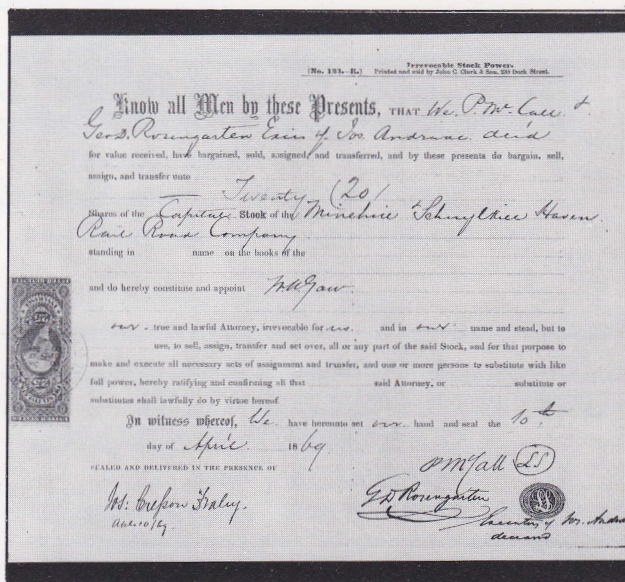 Irrevocable Stock Power.
[No. 193.-R.] Printed and sold by John C. Clark & Son, 230 Dock Street.
Know all Men by these Presents, THAT We, P. McCall &
Geo D. Rosengarten Exirs of Jos. Andrade dec'd
for value received, have bargained, sold, assigned, and transferred, and by these presents do bargain, sell,
assign, and transfer unto
Twenty (20)
Shares of the Capital Stock of the Minehill & Schuylkill Haven
Rail Road Company
standing in name on the books of the
and do hereby constitute and appoint
our true and lawful Attorney, irrevocable for us and in our name and stead, but to
use, to sell, assign, transfer and set over, all or any part of the said Stock, and for that purpose to
make and execute all necessary acts of assignment and transfer, and one or more persons to substitute with like
full power, hereby ratifying and confirming all that said Attorney, or substitute or
substitutes shall lawfully do by virtue hereof.
In witness whereof, We have hereunto set our hand and seal the 10th
day of April 1869
SEALED AND DELIVERED IN THE PRESENCE OF
P McCall LS
G D Rosengarten
Jos: Cresson Fraley.
April 10/69
Executors of Jos. Andrade
deceased